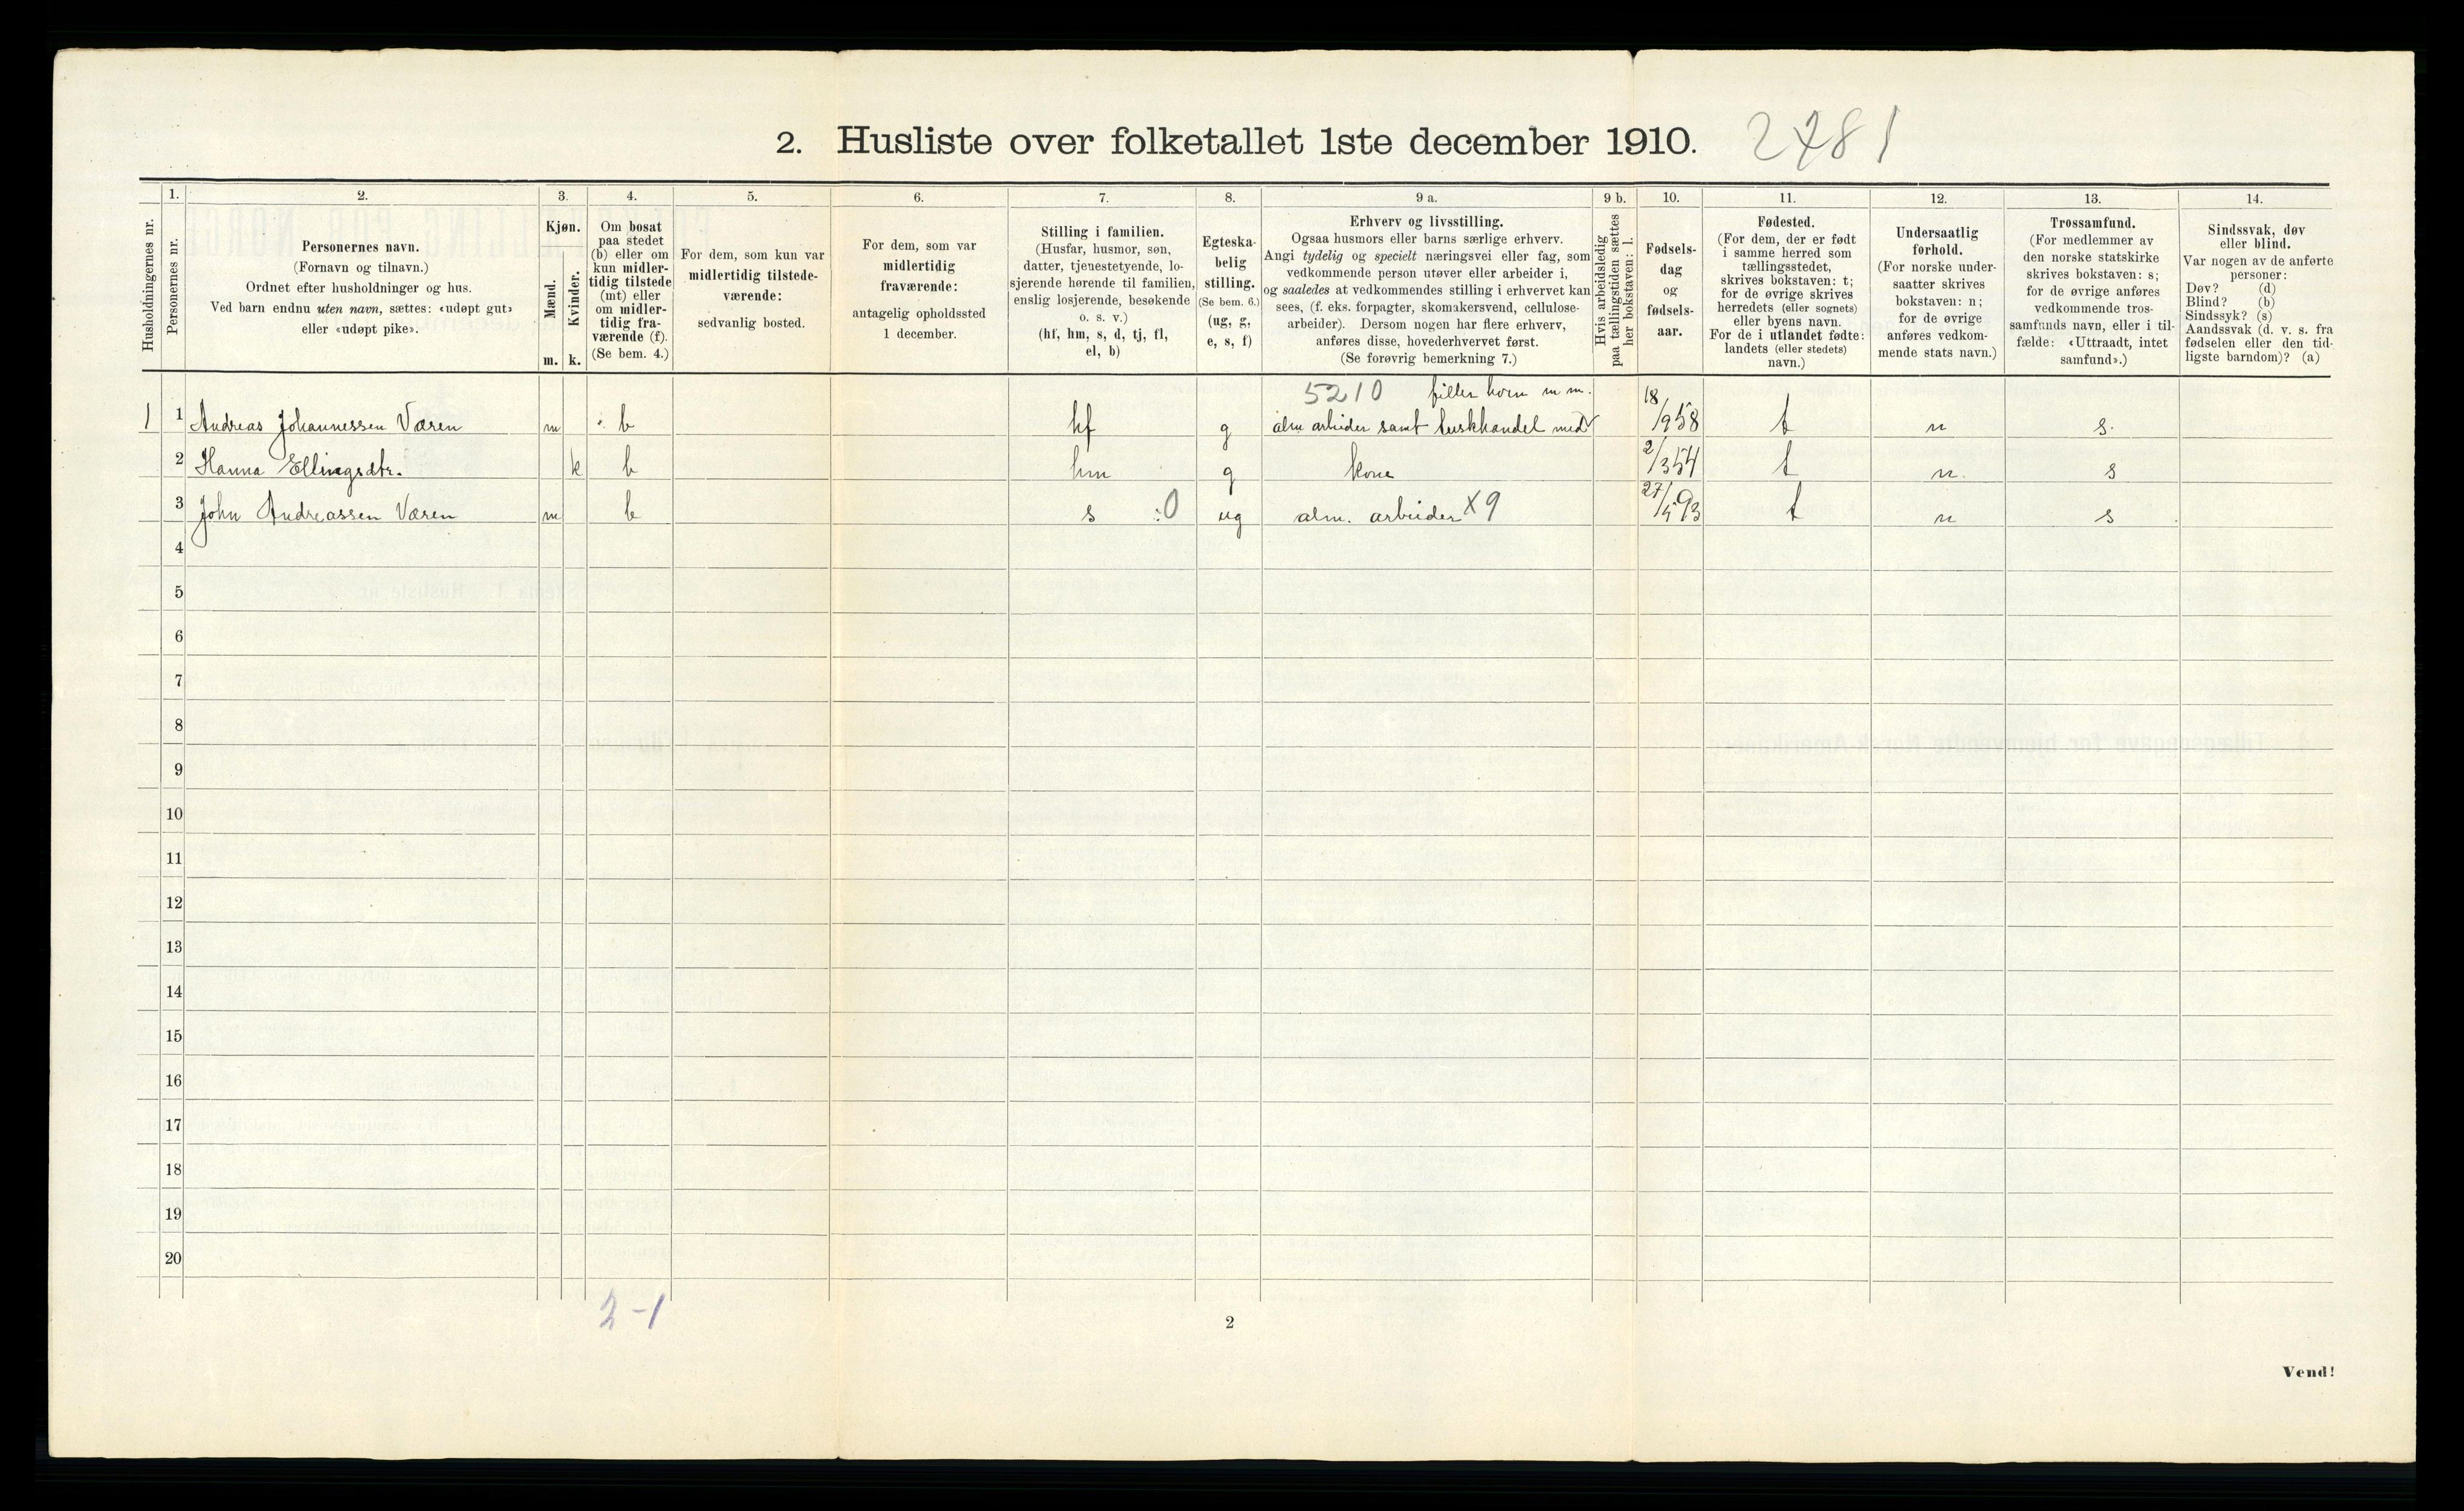 2. Husliste over folketallet 1ste december 1910. 2781
Husholdningernes nr.
1. Personernes nr.
2. Personernes navn.
(Fornavn og tilnavn.)
Ordnet efter husholdninger og hus.
Ved barn endnu uten navn, sættes: «udøpt gut»
eller «udøpt pike».
3. Kjøn.
Mænd. Kvinder.
m. k.
4. Om bosat
paa stedet
(b) eller om
kun midler-
tidig tilstede
(mt) eller
om midler-
tidig fra-
værende (f).
(Se bem. 4.)
5. For dem, som kun var
midlertidig tilstede-
værende:
sedvanlig bosted.
6. For dem, som var
midlertidig
fraværende:
antagelig opholdssted
1 december.
7. Stilling i familien.
(Husfar, husmor, søn,
datter, tjenestetyende, lo-
sjerende hørende til familien,
enslig losjerende, besøkende
o. s. v.)
(hf, hm, s, d, tj, fl,
el, b)
8. Egteska-
belig
stilling.
(Se bem. 6.)
(ug, g,
e, s, f)
9 a. Erhverv og livsstilling.
Ogsaa husmors eller barns særlige erhverv.
Angi tydelig og specielt næringsvei eller fag, som
vedkommende person utøver eller arbeider i,
og saaledes at vedkommendes stilling i erhvervet kan
sees, (f. eks. forpagter, skomakersvend, cellulose-
arbeider). Dersom nogen har flere erhverv,
anføres disse, hovederhvervet først.
(Se forøvrig bemerkning 7.)
9 b. Hvis arbeidsledig
paa tællingstiden sættes
her bokstaven: l.
10. Fødsels-
dag
og
fødsels-
aar.
11. Fødested.
(For dem, der er født
i samme herred som
tællingsstedet,
skrives bokstaven: t;
for de øvrige skrives
herredets (eller sognets)
eller byens navn.
For de i utlandet fødte:
landets (eller stedets)
navn.)
12. Undersaatlig
forhold.
(For norske under-
saatter skrives
bokstaven: n;
for de øvrige
anføres vedkom-
mende stats navn.)
13. Trossamfund.
(For medlemmer av
den norske statskirke
skrives bokstaven: s;
for de øvrige anføres
vedkommende tros-
samfunds navn, eller i til-
fælde: «Uttraadt, intet
samfund».)
14. Sindssvak, døv
eller blind.
Var nogen av de anførte
personer:
Døv? (d)
Blind? (b)
Sindssyk? (s)
Aandssvak (d. v. s. fra
fødselen eller den tid-
ligste barndom)? (a)
5210 filler horn m m.
1 1 Andreas Johannessen Væren m b hf g alm arbeider samt tuskhandel med 18/9 58 t n s.
2 Hanna Ellingsdtr. k b hm g kone 2/3 54 t n. s
3 John Andreassen Væren m b s :0 ug alm. arbeider X9 27/5 93 t n s
4
5
6
7
8
9
10
11
12
13
14
15
16
17
18
19
20
2-1
2
Vend!